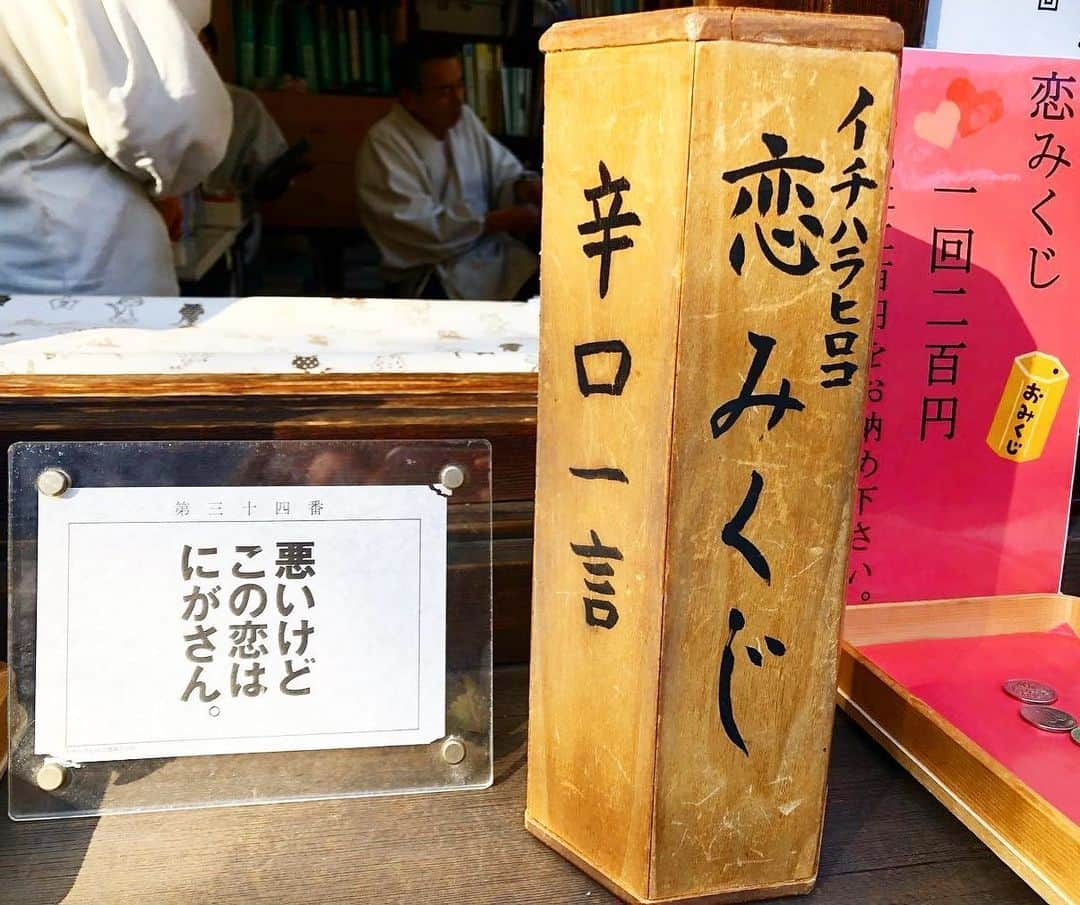 第三十四番
悪いけど
この恋は
にがさん。
イチハラヒロコ
恋みくじ
辛口一言
恋みくじ
一回二百円
百円をお納め下さい。
おみくじ
回